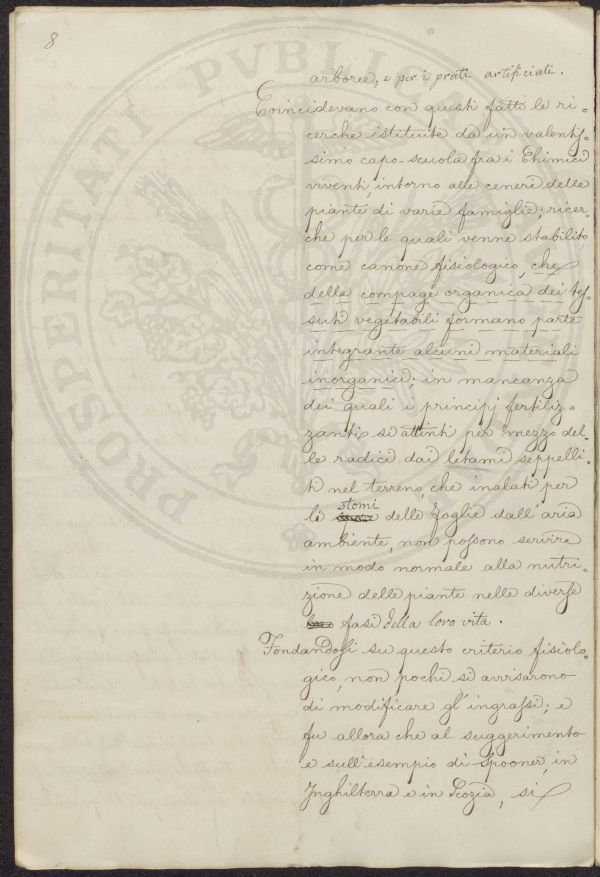 8
PROSPERITATI PVBLICAE
arboree, e per i prati artificiati.
Coincidevano con questi fatti le ri=
cerche istituite da un valentis=
simo capo-scuola fra i Chimici
viventi, intorno alle ceneri delle
piante di varie famiglie; ricer=
che per le quali venne stabilito
come canone fisiologico, che
della compage organica dei tes=
suti vegetabili formano parte
integrante alcuni materiali
inorganici; in mancanza
dei quali i principj fertiliz=
zanti sì attinti per mezzo del=
le radici dai letami seppelli=
ti nel terreno, che inalati per
li stomi delle foglie dall'aria
ambiente, non possono servire
in modo normale alla nutri=
zione delle piante nelle diverse
fasi della loro vita.
Fondandosi su questo criterio fisiolo=
gico, non pochi si avvisarono
di modificare gl'ingrassi; e
fu allora che al suggerimento
e sull'esempio di Spooner, in
Inghilterra e in Scozia, si